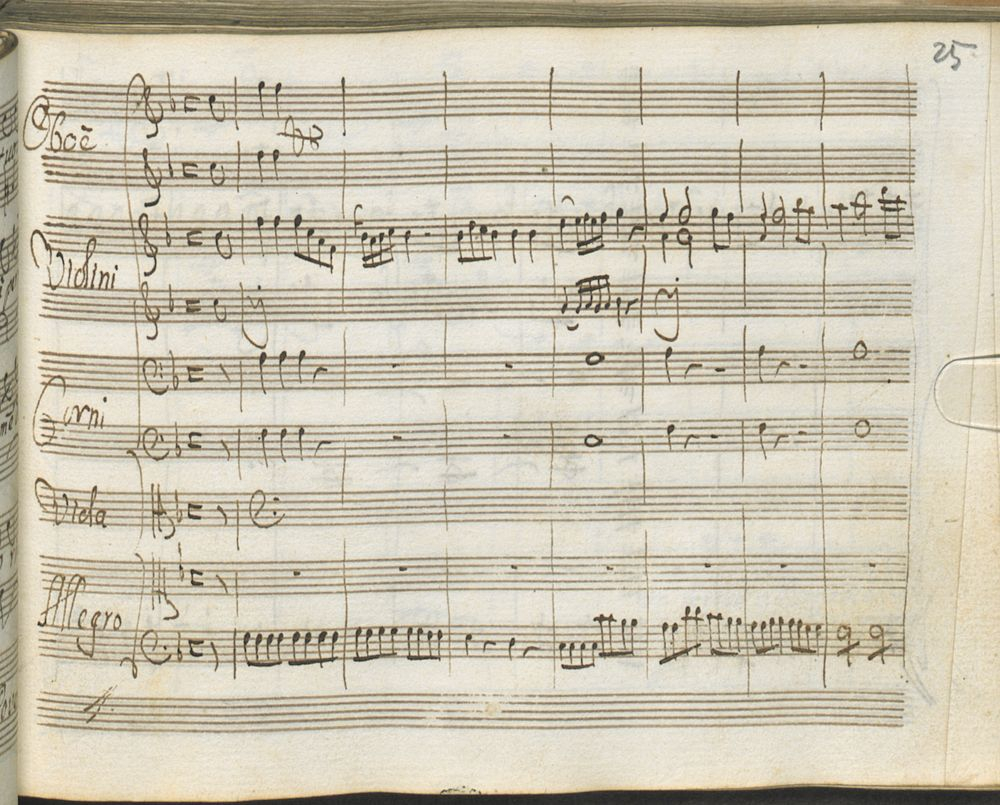 25
Oboè
Violini
Corni
Viola
Allegro